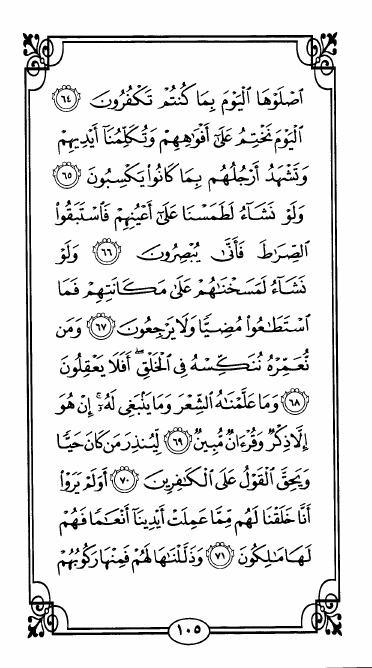 ٱصْلَوْهَا ٱلْيَوْمَ بِمَا كُنتُمْ تَكْفُرُونَ ٦٤
ٱلْيَوْمَ نَخْتِمُ عَلَىٰٓ أَفْوَٰهِهِمْ وَتُكَلِّمُنَآ أَيْدِيهِمْ
وَتَشْهَدُ أَرْجُلُهُم بِمَا كَانُوا۟ يَكْسِبُونَ ٦٥
وَلَوْ نَشَآءُ لَطَمَسْنَا عَلَىٰٓ أَعْيُنِهِمْ فَٱسْتَبَقُوا۟
ٱلصِّرَٰطَ فَأَنَّىٰ يُبْصِرُونَ ٦٦ وَلَوْ
نَشَآءُ لَمَسَخْنَٰهُمْ عَلَىٰ مَكَانَتِهِمْ فَمَا
ٱسْتَطَٰعُوا۟ مُضِيًّا وَلَا يَرْجِعُونَ ٦٧ وَمَن
نُّعَمِّرْهُ نُنَكِّسْهُ فِى ٱلْخَلْقِ ۖ أَفَلَا يَعْقِلُونَ
٦٨ وَمَا عَلَّمْنَٰهُ ٱلشِّعْرَ وَمَا يَنۢبَغِى لَهُۥٓ ۚ إِنْ هُوَ
إِلَّا ذِكْرٌ وَقُرْءَانٌ مُّبِينٌ ٦٩ لِّيُنذِرَ مَن كَانَ حَيًّا
وَيَحِقَّ ٱلْقَوْلُ عَلَى ٱلْكَٰفِرِينَ ٧٠ أَوَلَمْ يَرَوْا۟
أَنَّا خَلَقْنَا لَهُم مِّمَّا عَمِلَتْ أَيْدِينَآ أَنْعَٰمًا فَهُمْ
لَهَا مَٰلِكُونَ ٧١ وَذَلَّلْنَٰهَا لَهُمْ فَمِنْهَا رَكُوبُهُمْ
١٠٥